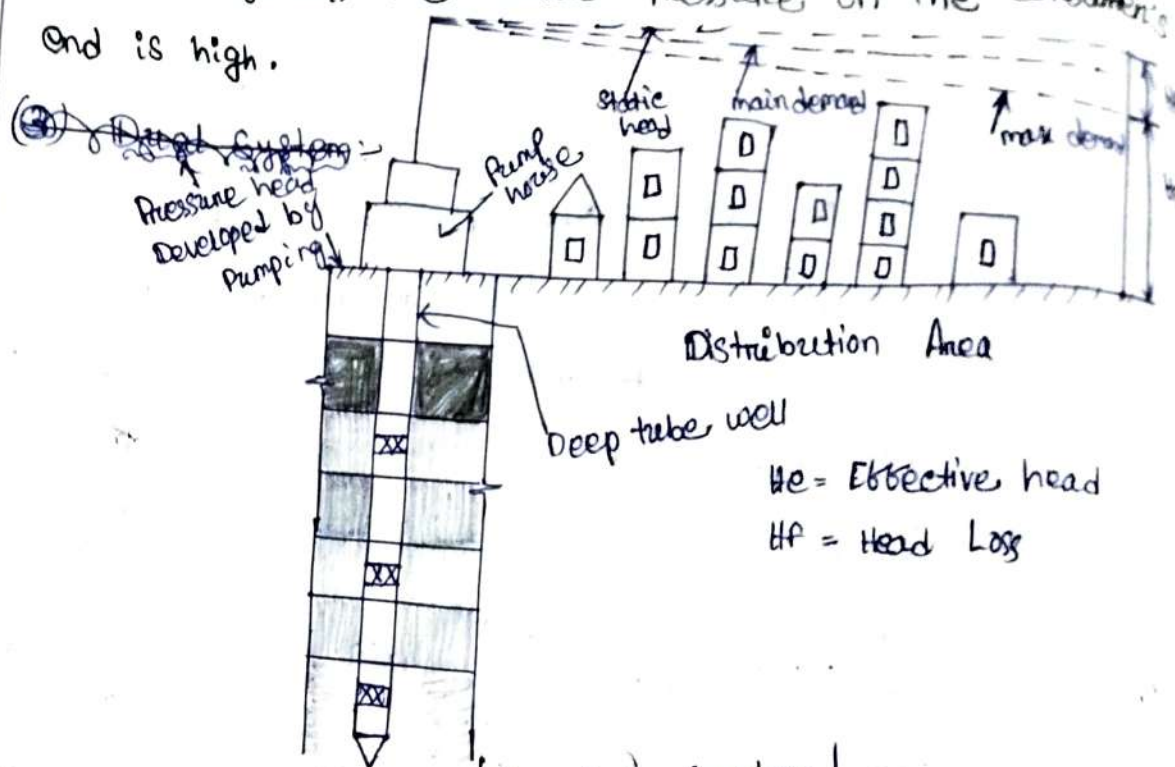 pressure on the
end is high.
(3) Dual System :-
Pressure head
Developed by
Pumping
Pump
house
static
head
main demand
max demand
Distribution Area
Deep tube well
He = Effective head
Hf = Head Loss